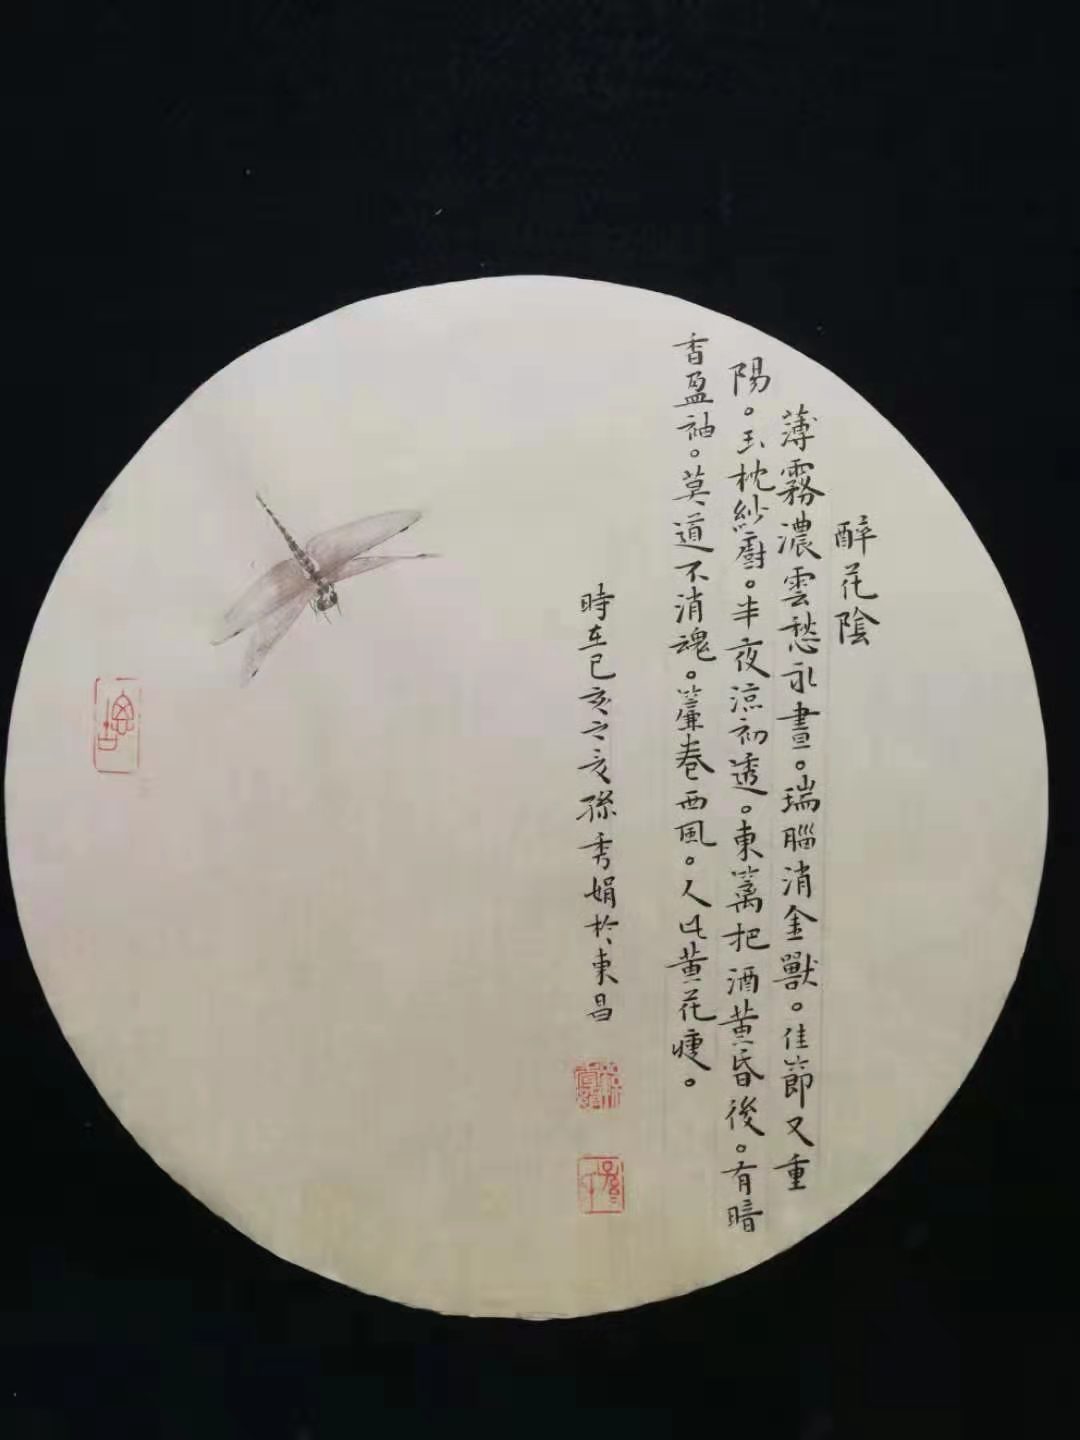 醉花陰
薄霧濃雲愁永晝。瑞腦消金獸。佳節又重
陽。玉枕紗廚。半夜涼初透。東籬把酒黃昏後。有暗
香盈袖。莫道不消魂。簾卷西風。人比黃花瘦。
時在己亥之亥孫秀娟於東昌